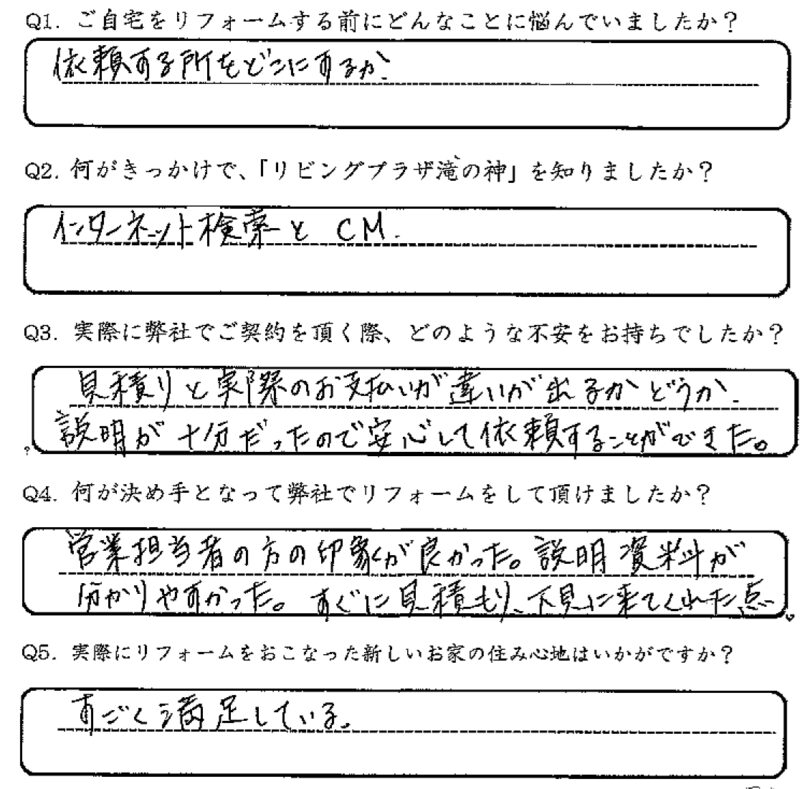 Q1. ご自宅をリフォームする前にどんなことに悩んでいましたか？
依頼する所をどこにするか
Q2. 何がきっかけで、「リビングプラザ滝の神」を知りましたか？
インターネット検索と CM.
Q3. 実際に弊社でご契約を頂く際、どのような不安をお持ちでしたか？
見積りと実際のお支払いが違いが出るかどうか.
説明が十分だったので安心して依頼することができた。
Q4. 何が決め手となって弊社でリフォームをして頂けましたか？
営業担当者の方の印象が良かった。説明資料が
分かりやすかった。すぐに見積もり、下見に来てくれた点。
Q5. 実際にリフォームをおこなった新しいお家の住み心地はいかがですか？
すごく満足している。